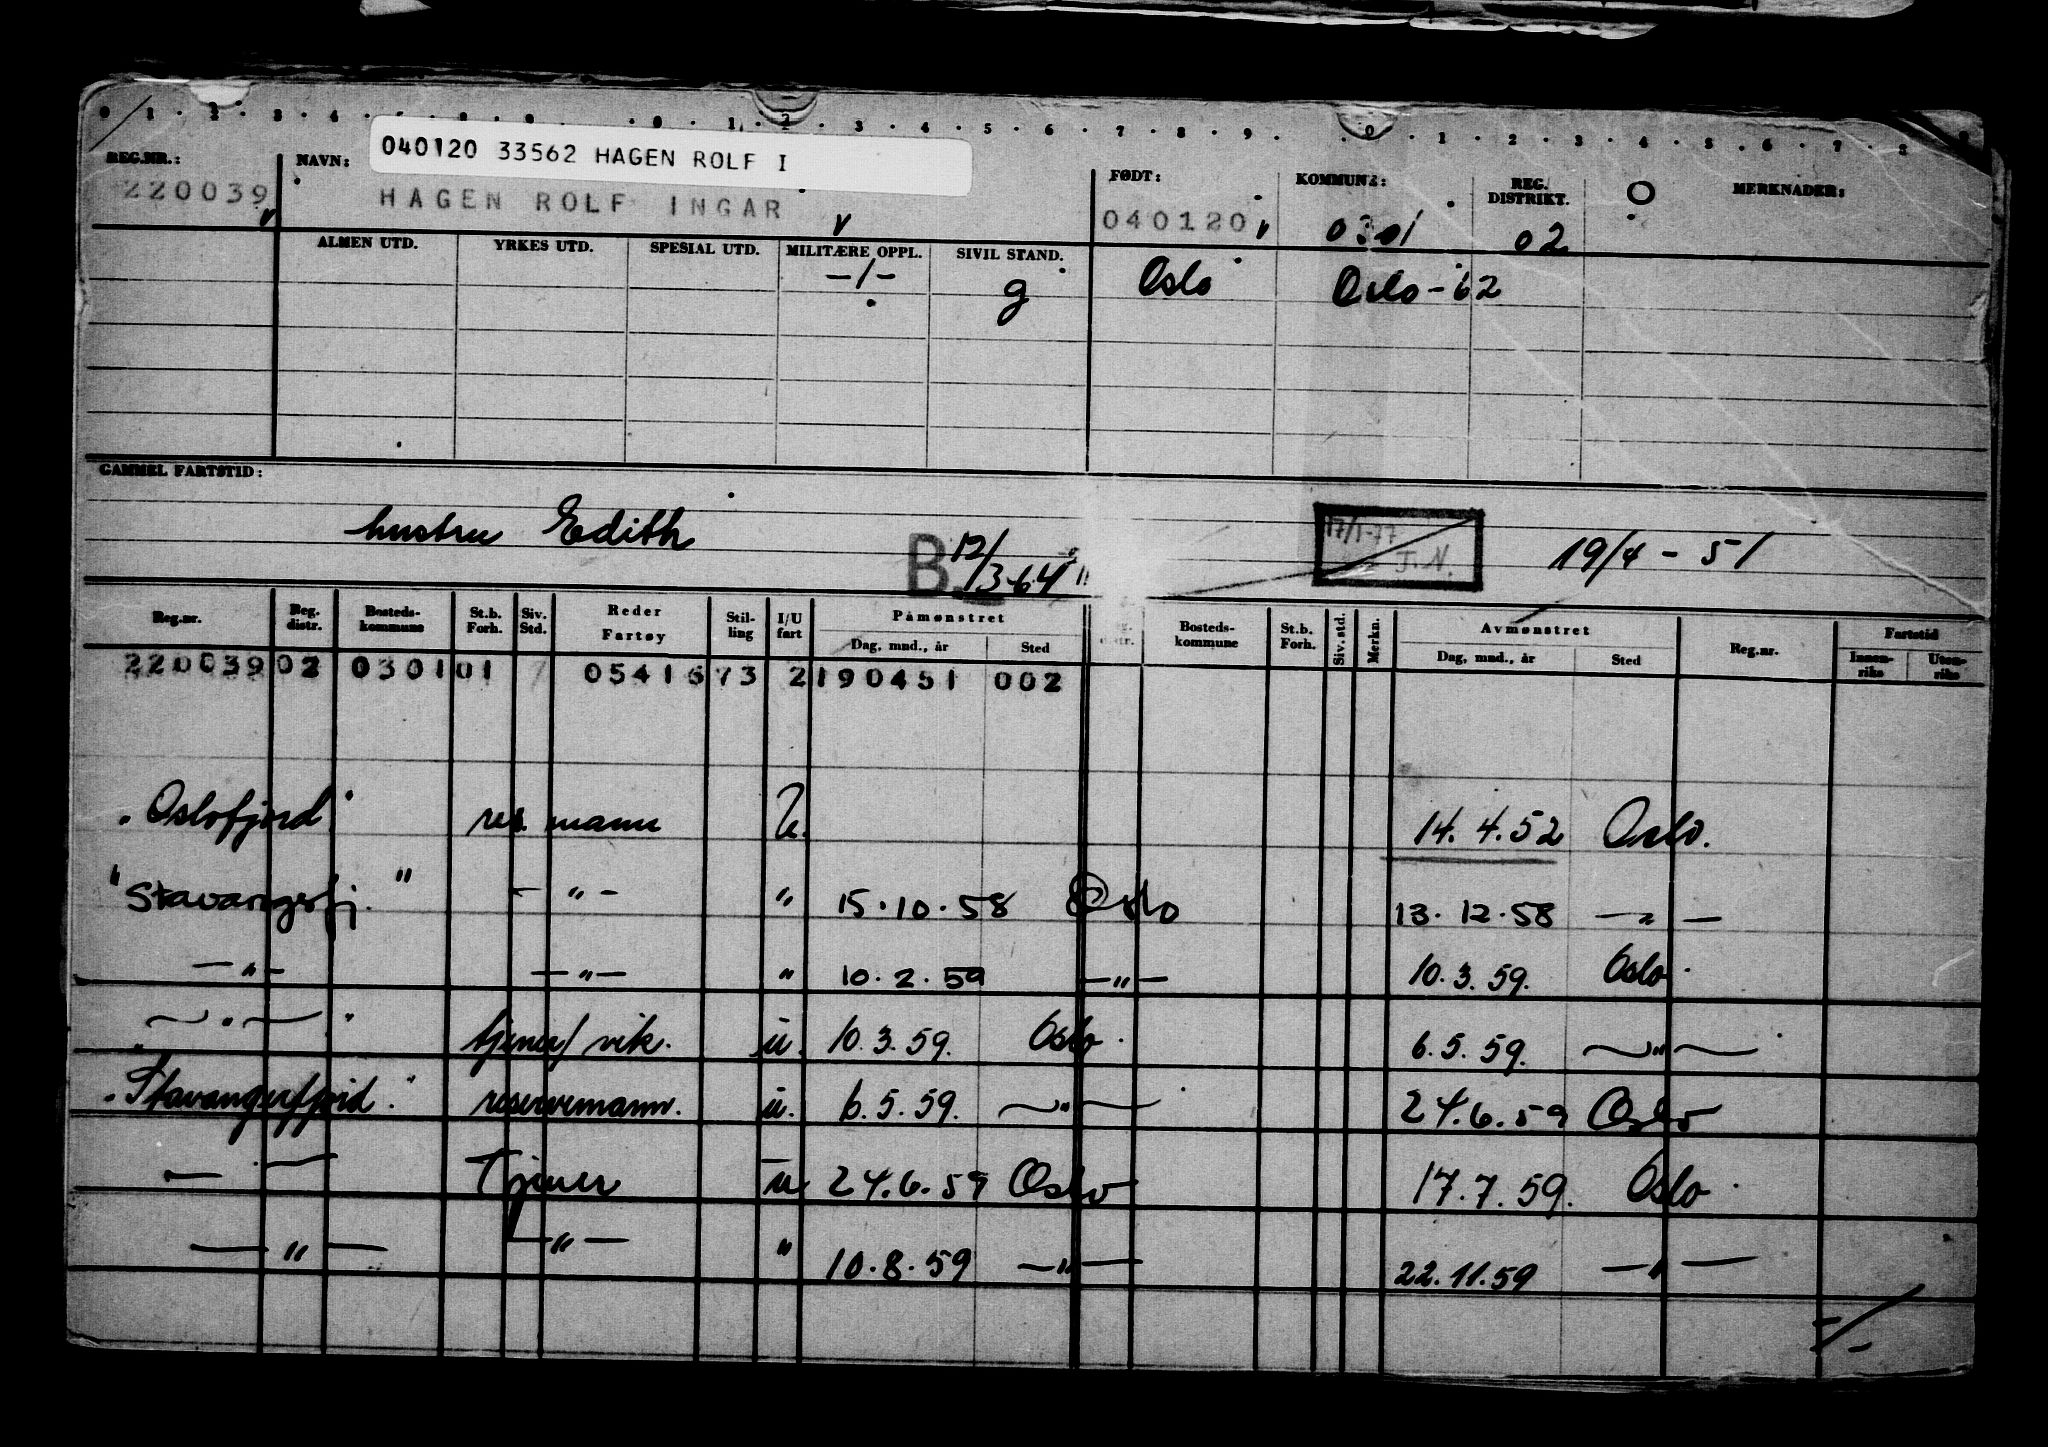 0 . 1 . 2 . 3 . 4 . 5 . 6 . 7 . 8 . 9 . 0 . 1 . 2 . 3 . 4 . 5 . 6 . 7 . 8 . 9 . 0 . 1 . 2 . 3 . 4 . 5 . 6 . 7 . 8 . 9
040120 33562 HAGEN ROLF I
REG.NR.: NAVN: FØDT: KOMMUNE: REG. DISTRIKT. O MERKNADER:
220039 HAGEN ROLF INGAR 040120 0301 02
ALMEN UTD. YRKES UTD. SPESIAL UTD. MILITÆRE OPPL. SIVIL STAND.
-/- g Oslo Oslo-62
GAMMEL FARTSTID:
hustru Edith B. 12/3-64 17/1-77 J.N. 19/4-51
Reg.nr. Reg. distr. Bosteds-kommune St.b. Forh. Siv. Std. Reder Fartøy Stil-ling I/U fart Påmønstret Dag, mnd., år Sted Bosteds-kommune St.b. Forh. Siv. std. Merkn. Avmønstret Dag, mnd., år Sted Reg.nr. Fartstid Innen-riks Uten-riks
220039 02 0301 01 7 05416 73 2 190451 002
"Oslofjord" res. mann U. 14.4.52 Oslo.
"Stavangerfj." - " - " 15.10.58 Oslo 13.12.58 - " -
- " - - " - " 10.2.59 - " - 10.3.59. Oslo.
- " - " tjener/vik. u. 10.3.59. Oslo. 6.5.59. - " -
"Stavangerfjord." reservemann. u. 6.5.59. - " - 24.6.59 Oslo
- - Tjener u 24.6.59 Oslo 17.7.59. Oslo
- " - - " - " 10.8.59 - " - 22.11.59 - " -
-/-